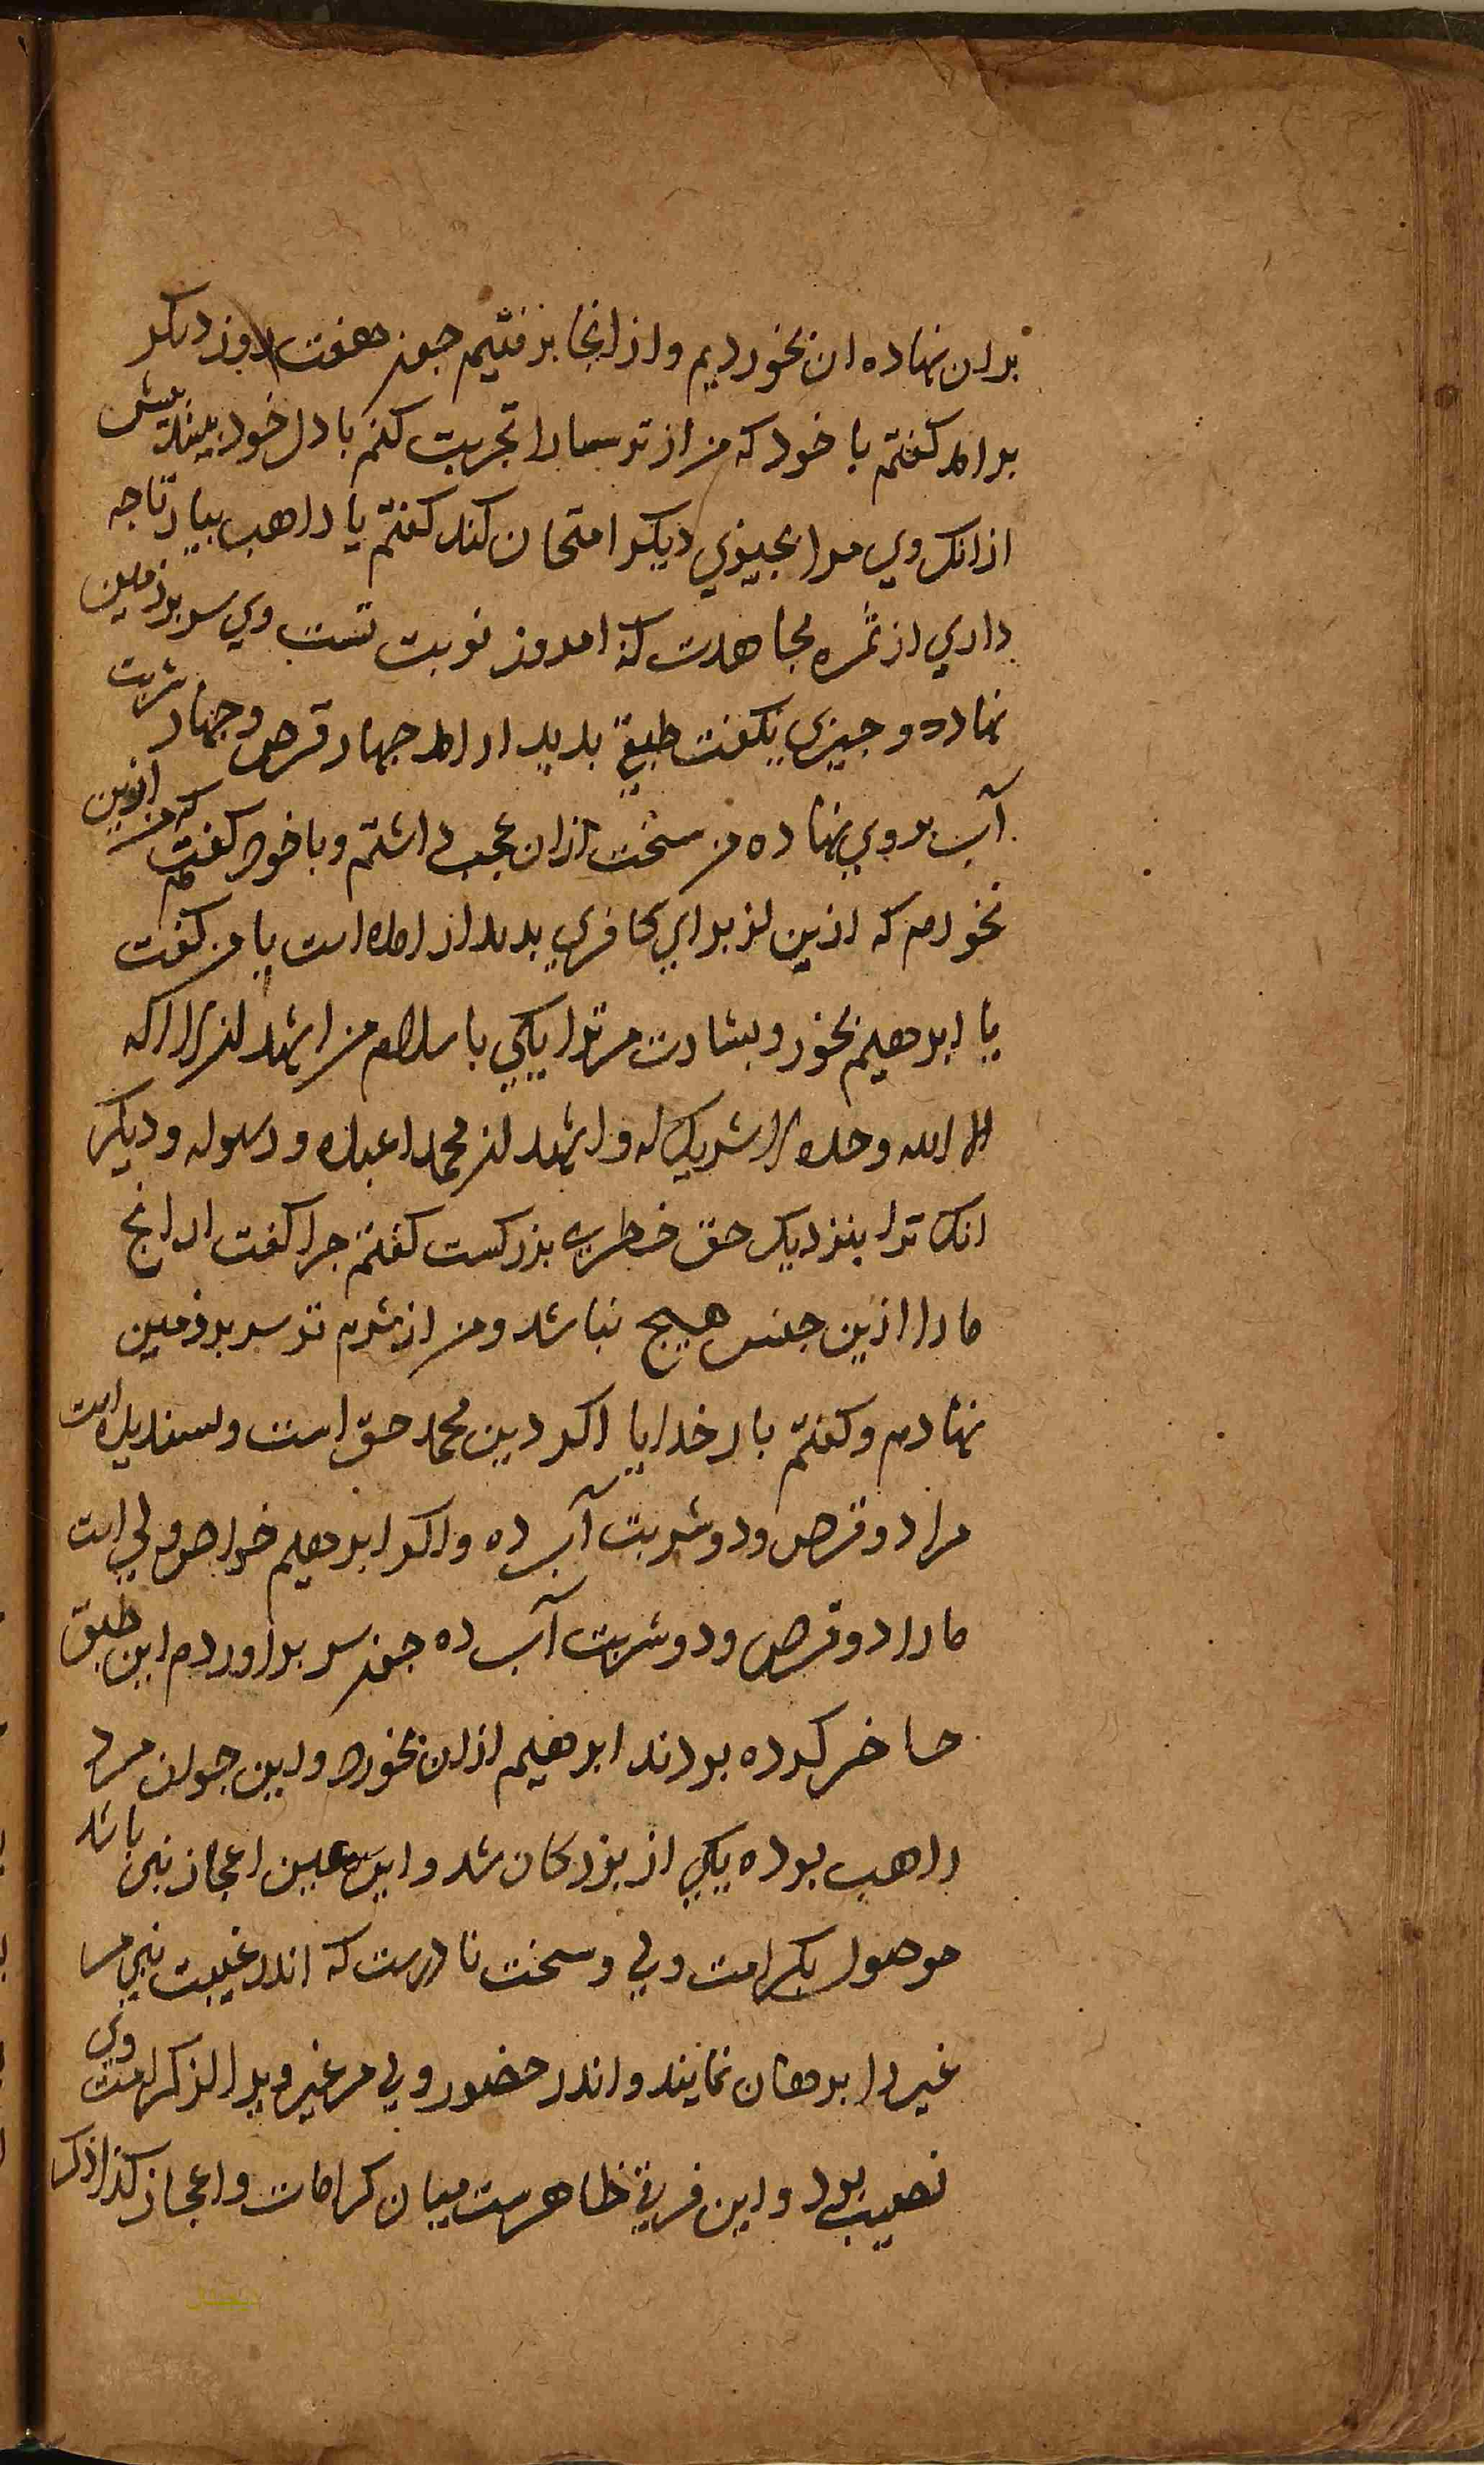 بران نهاده ان بخورديم و از انجا برفتيم جون هفت روز ديكر
برامد كفتم با خود كه من از ترسا را تجربت كنم با دل خود پيش
ازانك وي مرا بجيزي ديكر امتحان كند كفتم يا راهب بيار تا جه
داري از ثمره مجاهدت كه امروز نوبت تست وي سر بر زمين
نهاد و جيزي بكفت طبقي بديد امد جهار قرص و جهار شربت
آب بروي نهاده من سخت ازان عجب داشتم و با خود كفتم كه من ازين
نخورم كه ازين از براي كافري بديد امده است با من كفت
يا ابرهيم بخور و بشارت مر ترا يكي باسلام من اشهد ان لا اله
الا الله وحده لا شريك له و اشهد ان محمدا عبده و رسوله و ديكر
انك ترا بنزديك حق خطري بزركست كفتم جرا كفت ازانج
ما را ازين جنس هيج نباشد و من از شرم تو سر بر زمين
نهادم و كفتم بار خدايا اكر دين محمد حق است و پسنديده است
مرا دو قرص و دو شربت آب ده و اكر ابرهيم خواص ولي است
ما را دو قرص و دو شربت آب ده جون سر براوردم اين طبق
حاضر كرده بودند ابرهيم ازان بخورد و اين جوان مرد
راهب بوده يكي از بزركان شد و اين عين اعجاز نبي باشد
موصول بكرامت ولي و سخت نادرست كه اندر غيبت نبي مر
غير را برهان نمايند و اندر حضور ولي مر غير ويرا از كرامت وي
نصيب بود و اين فرقي ظاهرست ميان كرامات و اعجاز كذا ذكر